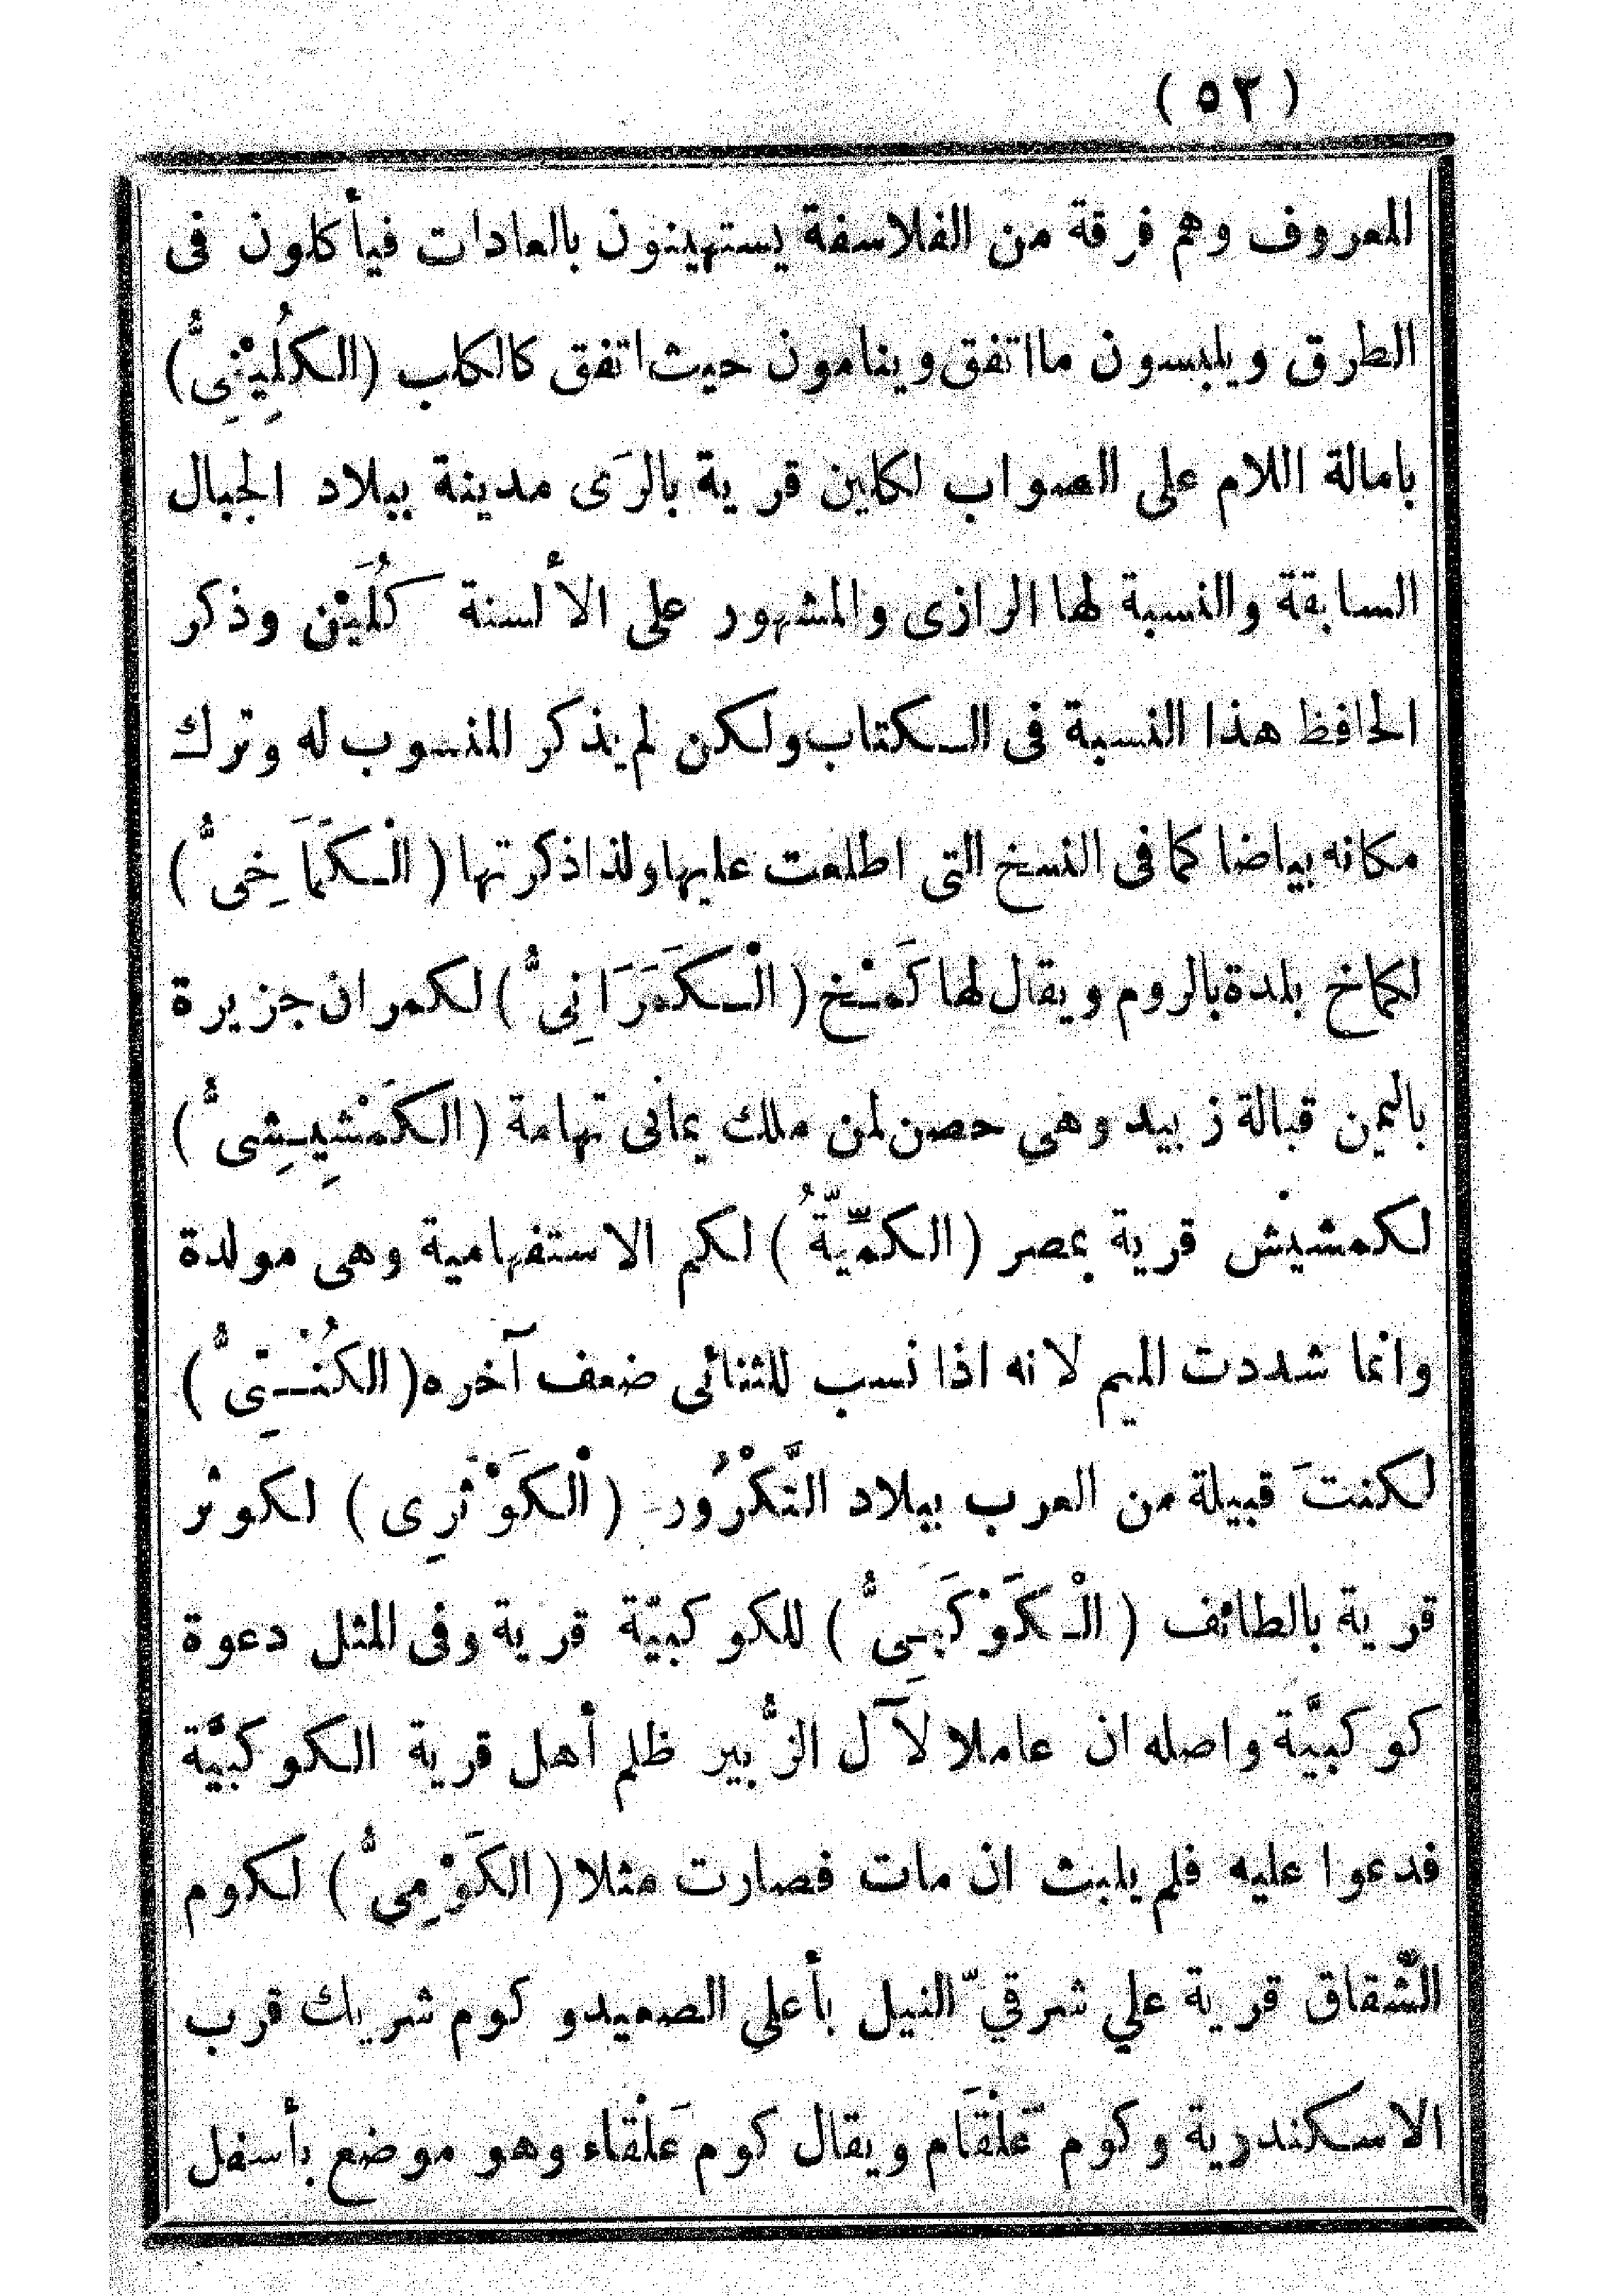 ( ٥٢ )
المعروف وهم فرقة من الفلاسفة يستهينون بالعادات فيأكلون فى
الطرق ويلبسون مااتفق وينامون حيث اتفق كالكلب (الكُلِيْنِىُّ)
بامالة اللام على الصواب لكلين قرية بالرَى مدينة ببلاد الجبال
السابقة والنسبة لها الرازى والمشهور على الألسنة كُلَيْن وذكر
الحافظ هذا النسبة فى الكتاب ولكن لم يذكر المنسوب له وترك
مكانه بياضا كما فى النسخ التى اطلعت عليها ولذا ذكرتها (الْكَمَاخِىُّ)
لكماخ بلدة بالروم ويقال لها كَمْخ (الْكَمَرَانِىُّ) لكمران جزيرة
باليمن قبالة زبيد وهي حصن لمن ملك يمانى تهامة (الكَمْشِيشِىُّ)
لكمشيْش قرية بمصر (الكمِّيَّةُ) لكم الاستفهامية وهى مولدة
وانما شددت الميم لانه اذا نسب للثنائى ضعف آخره (الكُنْتِىُّ)
لكنتَ قبيلة من العرب ببلاد التَّكْرُور (الْكَوْثَرِى) لكوثر
قرية بالطائف (الْكَوْكَبِىُّ) للكوكبيّة قرية وفى المثل دعوة
كوكبيَّة واصله ان عاملا لآل الزُّبير ظلم أهل قرية الكوكبيَّة
فدعوا عليه فلم يلبث ان مات فصارت مثلا (الكَوْمِىُّ) لكوم
الشّقاق قرية علي شرقيّ النيل بأعلي الصعيد و كوم شريك قرب
الاسكندرية وكوم عَلْقَام ويقال كوم عَلْقَاء وهو موضع بأسفل